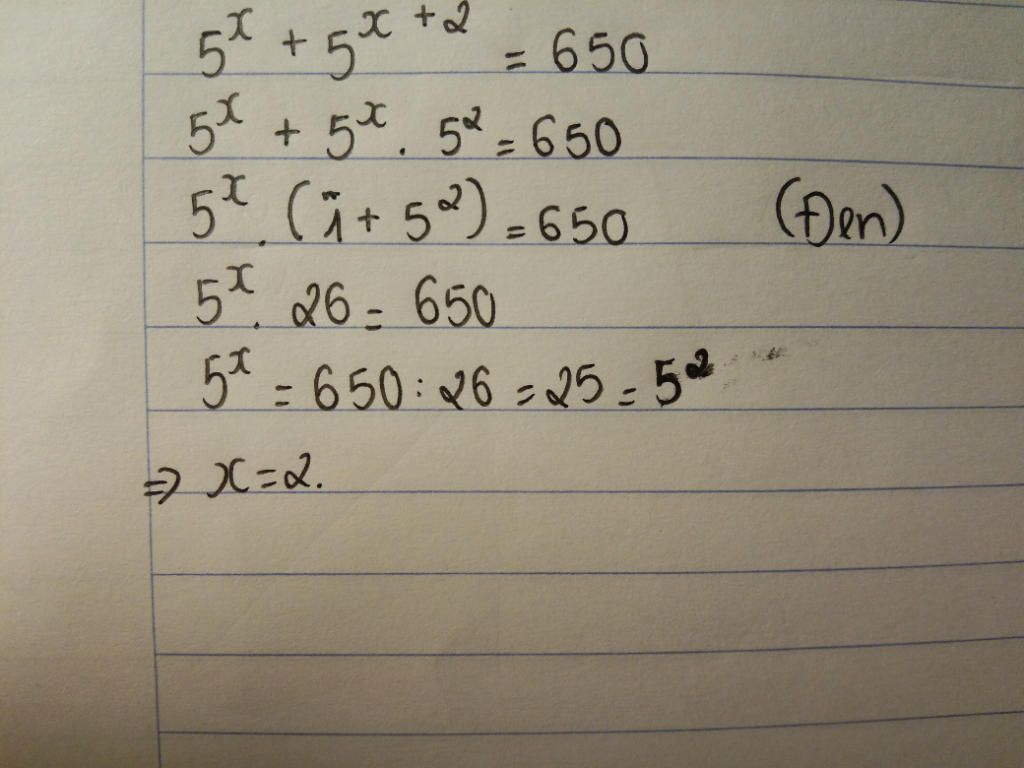 5^x + 5^{x+2} = 650
5^x + 5^x . 5^2 = 650
5^x . (1 + 5^2) = 650 (Đen)
5^x . 26 = 650
5^x = 650 : 26 = 25 = 5^2
⇒ x = 2.